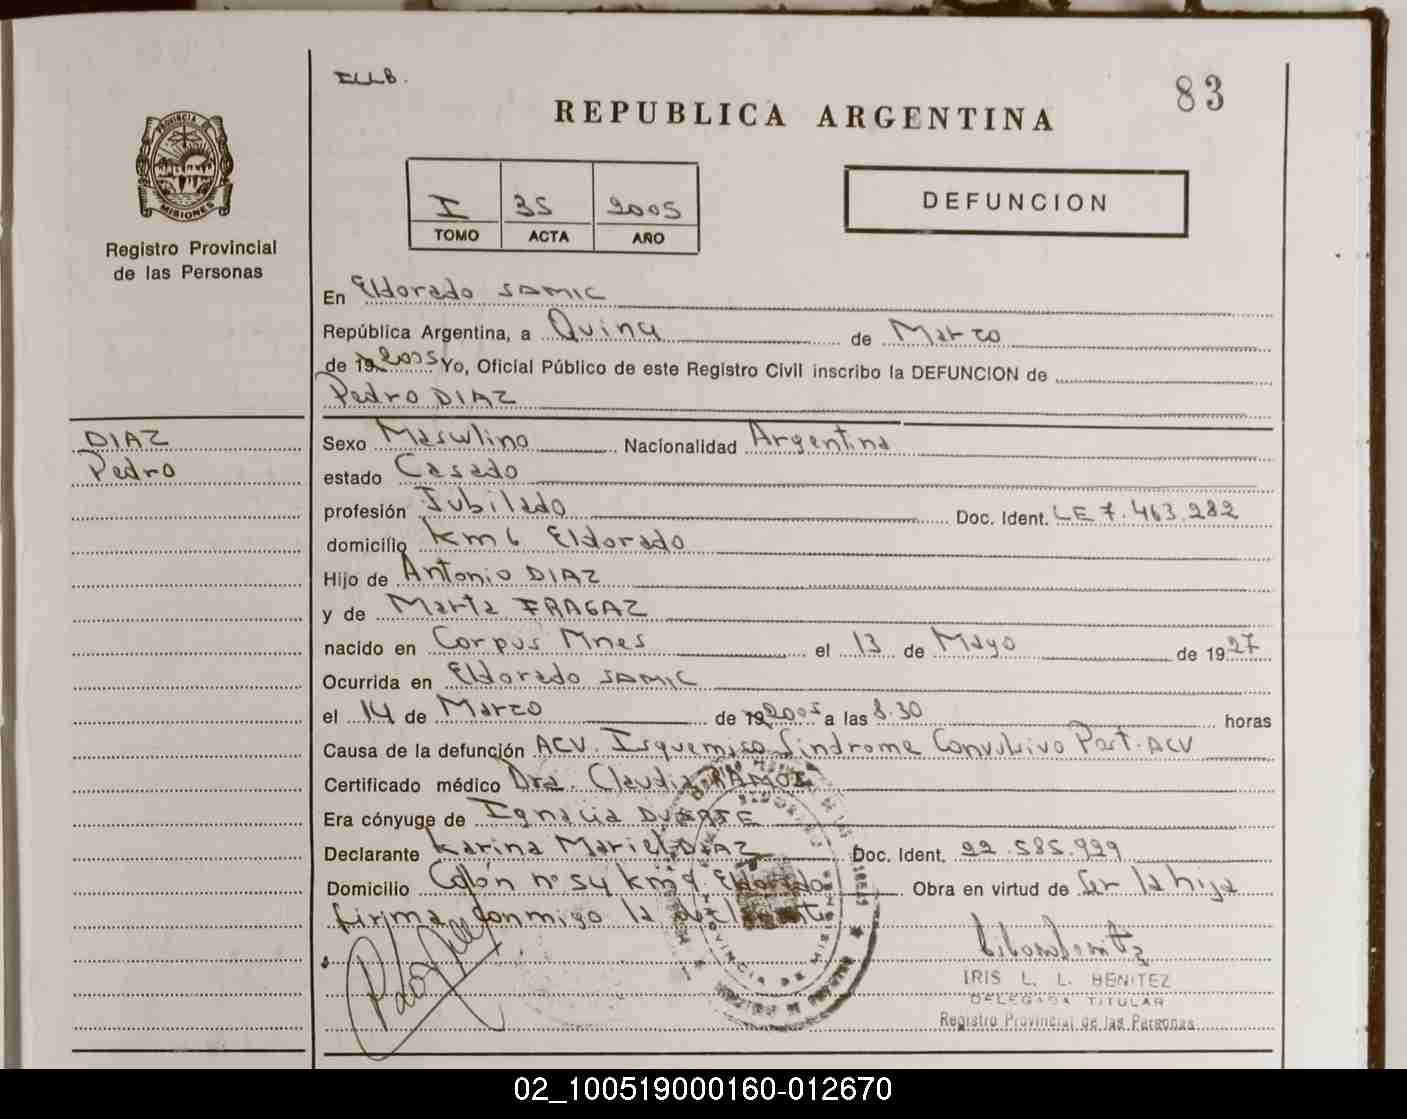 ILLB.
83
REPUBLICA ARGENTINA
PROVINCIA DE
MISIONES
Registro Provincial
de las Personas
I 35 2005
TOMO ACTA AÑO
DEFUNCION
En Eldorado SAMIC
República Argentina, a Quince de Marzo
de 192005 Yo, Oficial Público de este Registro Civil inscribo la DEFUNCION de
Pedro DIAZ
DIAZ
Pedro
Sexo Masculino Nacionalidad Argentina
estado Casado
profesión Jubilado Doc. Ident. LE 7.463.282
domicilio km 6 Eldorado
Hijo de Antonio DIAZ
y de Marta FRAGAZ
nacido en Corpus Mnes el 13 de Mayo de 1927
Ocurrida en Eldorado SAMIC
el 14 de Marzo de 192005 a las 8.30 horas
Causa de la defunción ACV. Isquemico Sindrome Convulsivo Post. ACV
Certificado médico Dra. Claudia RAMOS
Era cónyuge de Ignacia DUARTE
Declarante Karina Mariel DIAZ Doc. Ident. 22.585.929
Domicilio Colón nº 54 km 9 Eldorado Obra en virtud de ser la hija
firma conmigo la declarante
IRIS L. L. BENITEZ
DELEGADA TITULAR
Registro Provincial de las Personas
02_100519000160-012670